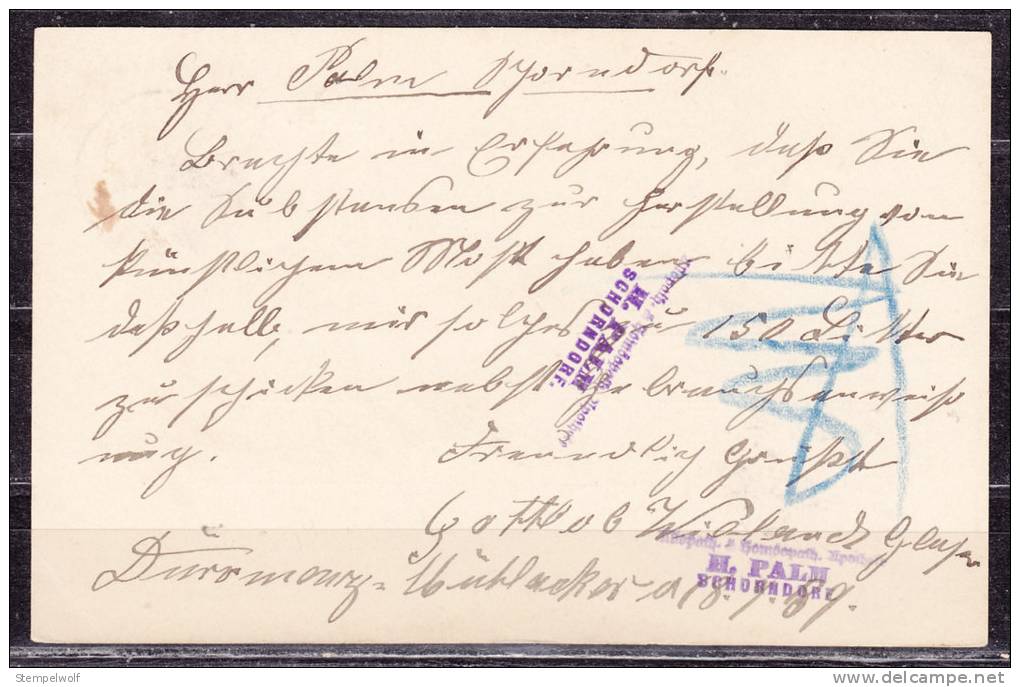 Herr Palm Schorndorf.
Brachte in Erfahrung, daß Sie
die Substansen zur Herstellung von
künstlichem Most haben bitte Sie
deßhalb, mir solches zu 150 Litter
zu schicken nebst Gebrauchsanweiß
ung.
Freundlich Grüßt
Gottlob Wieland Glaser
Dürrmenz-Mühlacker d 18. 7. 89.
Allopath. & Homöopath. Apotheke
H. PALM
SCHORNDORF.
Allopath. & Homöopath. Apotheke
H. PALM
SCHORNDORF
Stempelwolf
www.delcampe.net